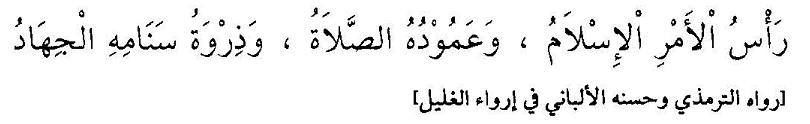 رَأْسُ الْأَمْرِ الْإِسْلَامُ ، وَعَمُوْدُهُ الصَّلَاَةُ ، وَذِرْوَةُ سَنَامِهِ الْجِهَادُ
[رواه الترمذي وحسنه الألباني في إرواء الغليل]